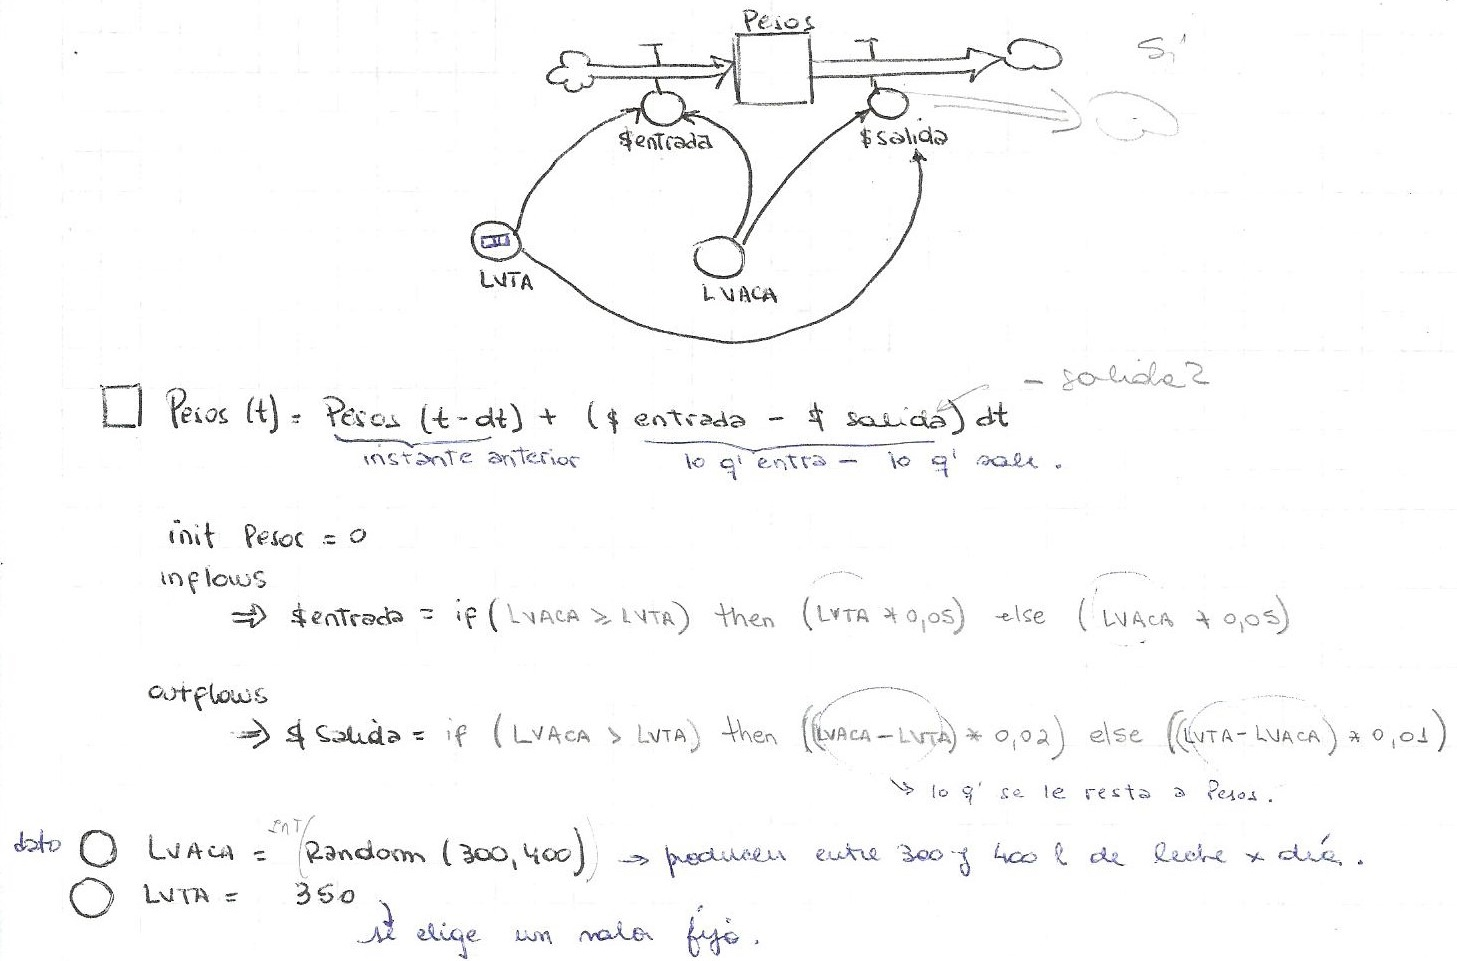 Pesos
Si
$entrada
$salida
LVTA
LVACA
- salida?
Pesos (t) = Pesos (t-dt) + ($ entrada - $ salida) dt
instante anterior lo q' entra - lo q' sale.
init Pesos = 0
inflows
⇒ $entrada = if (LVACA ≥ LVTA) then (LVTA * 0,05) else (LVACA * 0,05)
outflows
⇒ $ Salida = if (LVACA > LVTA) then ((LVACA-LVTA) * 0,02) else ((LVTA-LVACA) * 0,01)
↳ lo q' se le resta a Pesos.
dato LVACA = INT (Random (300,400)) → producen entre 300 y 400 l de leche x día.
LVTA = 350
se elige un valor fijo.